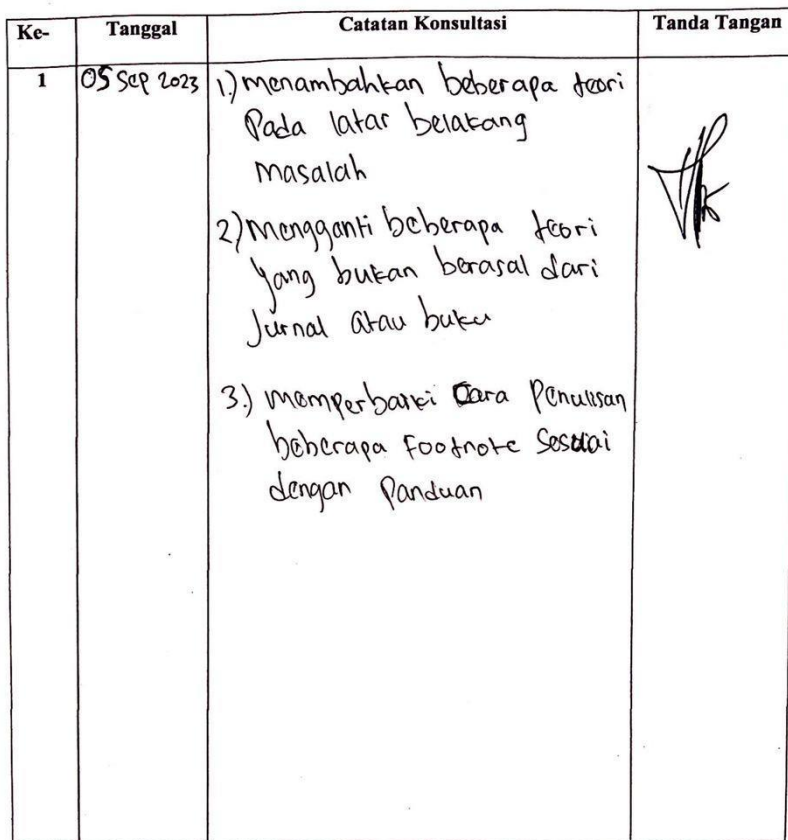 Ke- Tanggal Catatan Konsultasi Tanda Tangan
1 05 Sep 2023 1.) menambahkan beberapa teori
Pada latar belakang
masalah
2) mengganti beberapa teori
yang bukan berasal dari
Jurnal atau buku
3.) memperbaiki Cara Penulisan
beberapa Footnote Sesuai
dengan Panduan